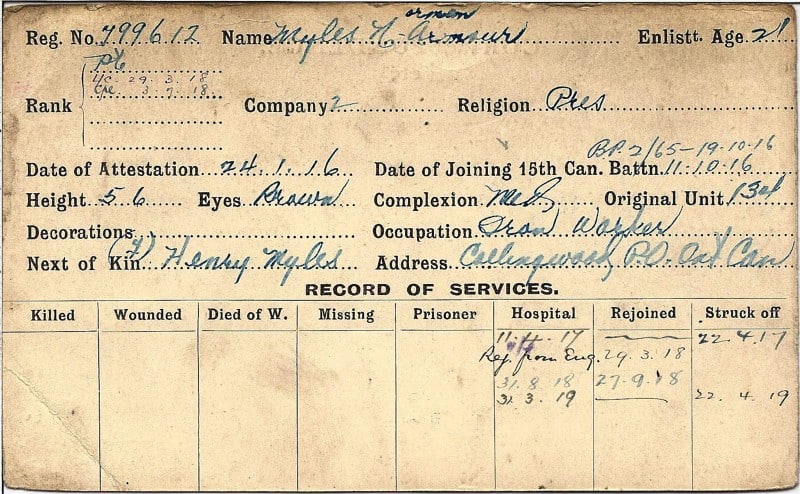 orman
Reg. No. 799612 Name Myles N. Armour Enlistt. Age 21
Pte
L/C. 29.3.18
Cpl. 3.9.18
Rank Company 2 Religion Pres
B.P. 2/65-19-10-16
Date of Attestation 24.1.16 Date of Joining 15th Can. Battn 11-10-16
Height 5 6 Eyes Brown Complexion Med Original Unit 134
Decorations Occupation Iron Worker
Next of Kin (F) Henry Myles Address Collingwood P.O. Ont Can
RECORD OF SERVICES.
Killed Wounded Died of W. Missing Prisoner Hospital Rejoined Struck off
11.4.17 22.4.17
Rej. from Eng. 29.3.18
31.8.18 27.9.18
31.3.19 22.4.19